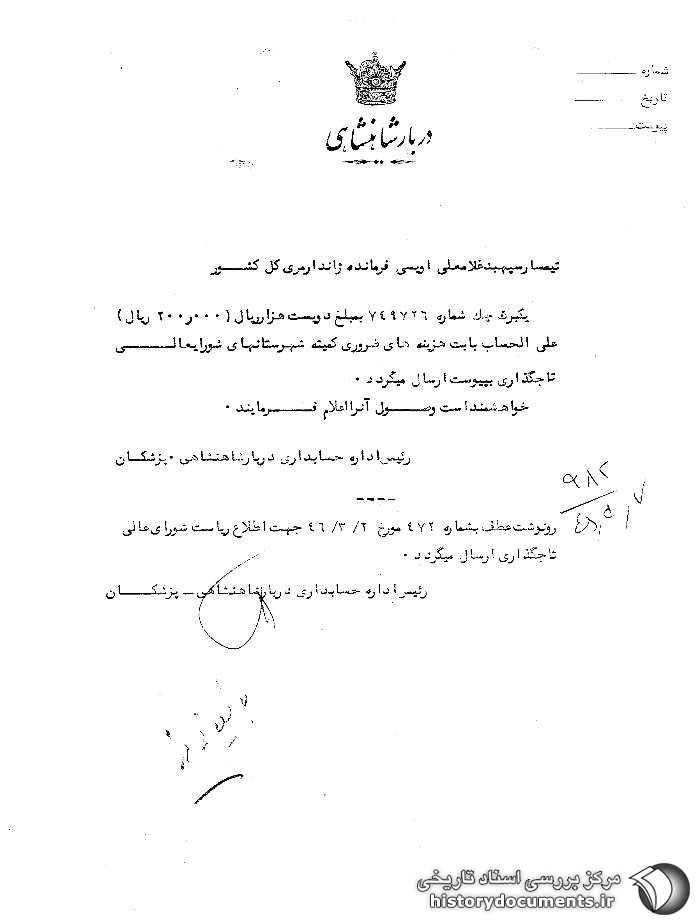 دربار شاهنشاهی
شماره
تاریخ
پیوست
تیمسار سپهبد غلامعلی اویسی فرمانده ژاندارمری کل کشور
یکبرگ چک شماره ۷۴۹۷۲۶ بمبلغ دویست هزار ریال (۲۰۰ر۰۰۰ ریال)
علی الحساب بابت هزینه های ضروری کمیته شهرستانهای شورایعالی
تاجگذاری بپیوست ارسال میگردد ۰
خواهشمند است وصول آنرا اعلام فرمایند ۰
رئیس اداره حسابداری دربار شاهنشاهی ۰ پزشکان
ـــــ
۹۸۲
رونوشت عطف بشماره ۴۷۲ مورخ ۲/ ۳/ ۴۶ جهت اطلاع ریاست شورای عالی
تاجگذاری ارسال میگردد ۰
رئیس اداره حسابداری دربار شاهنشاهی ــ پزشکان
بایگانی شود
مرکز بررسی اسناد تاریخی
historydocuments.ir